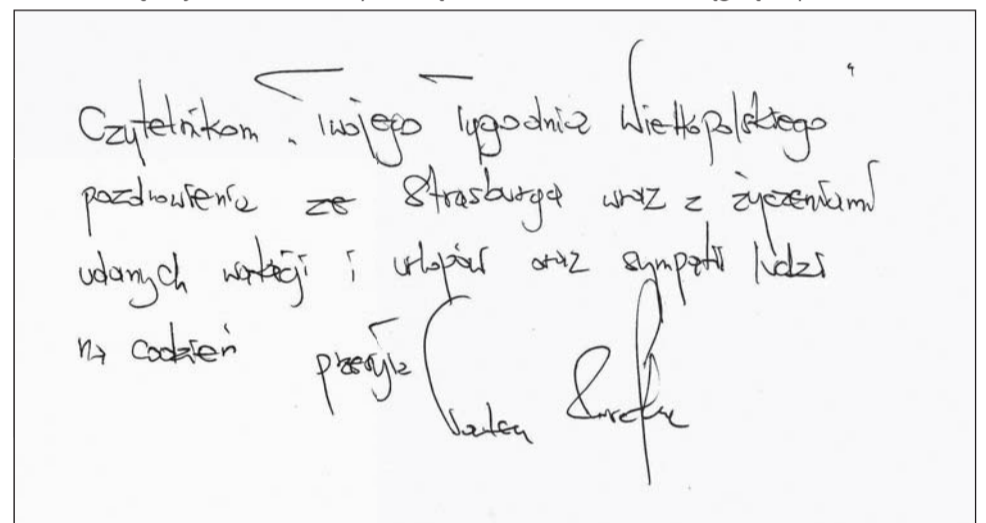 Czytelnikom "Twojego Tygodnia Wielkopolskiego"
pozdrowienia ze Strasburga wraz z życzeniami
udanych wakacji i urlopów oraz sympatii ludzi
na codzień przesyła